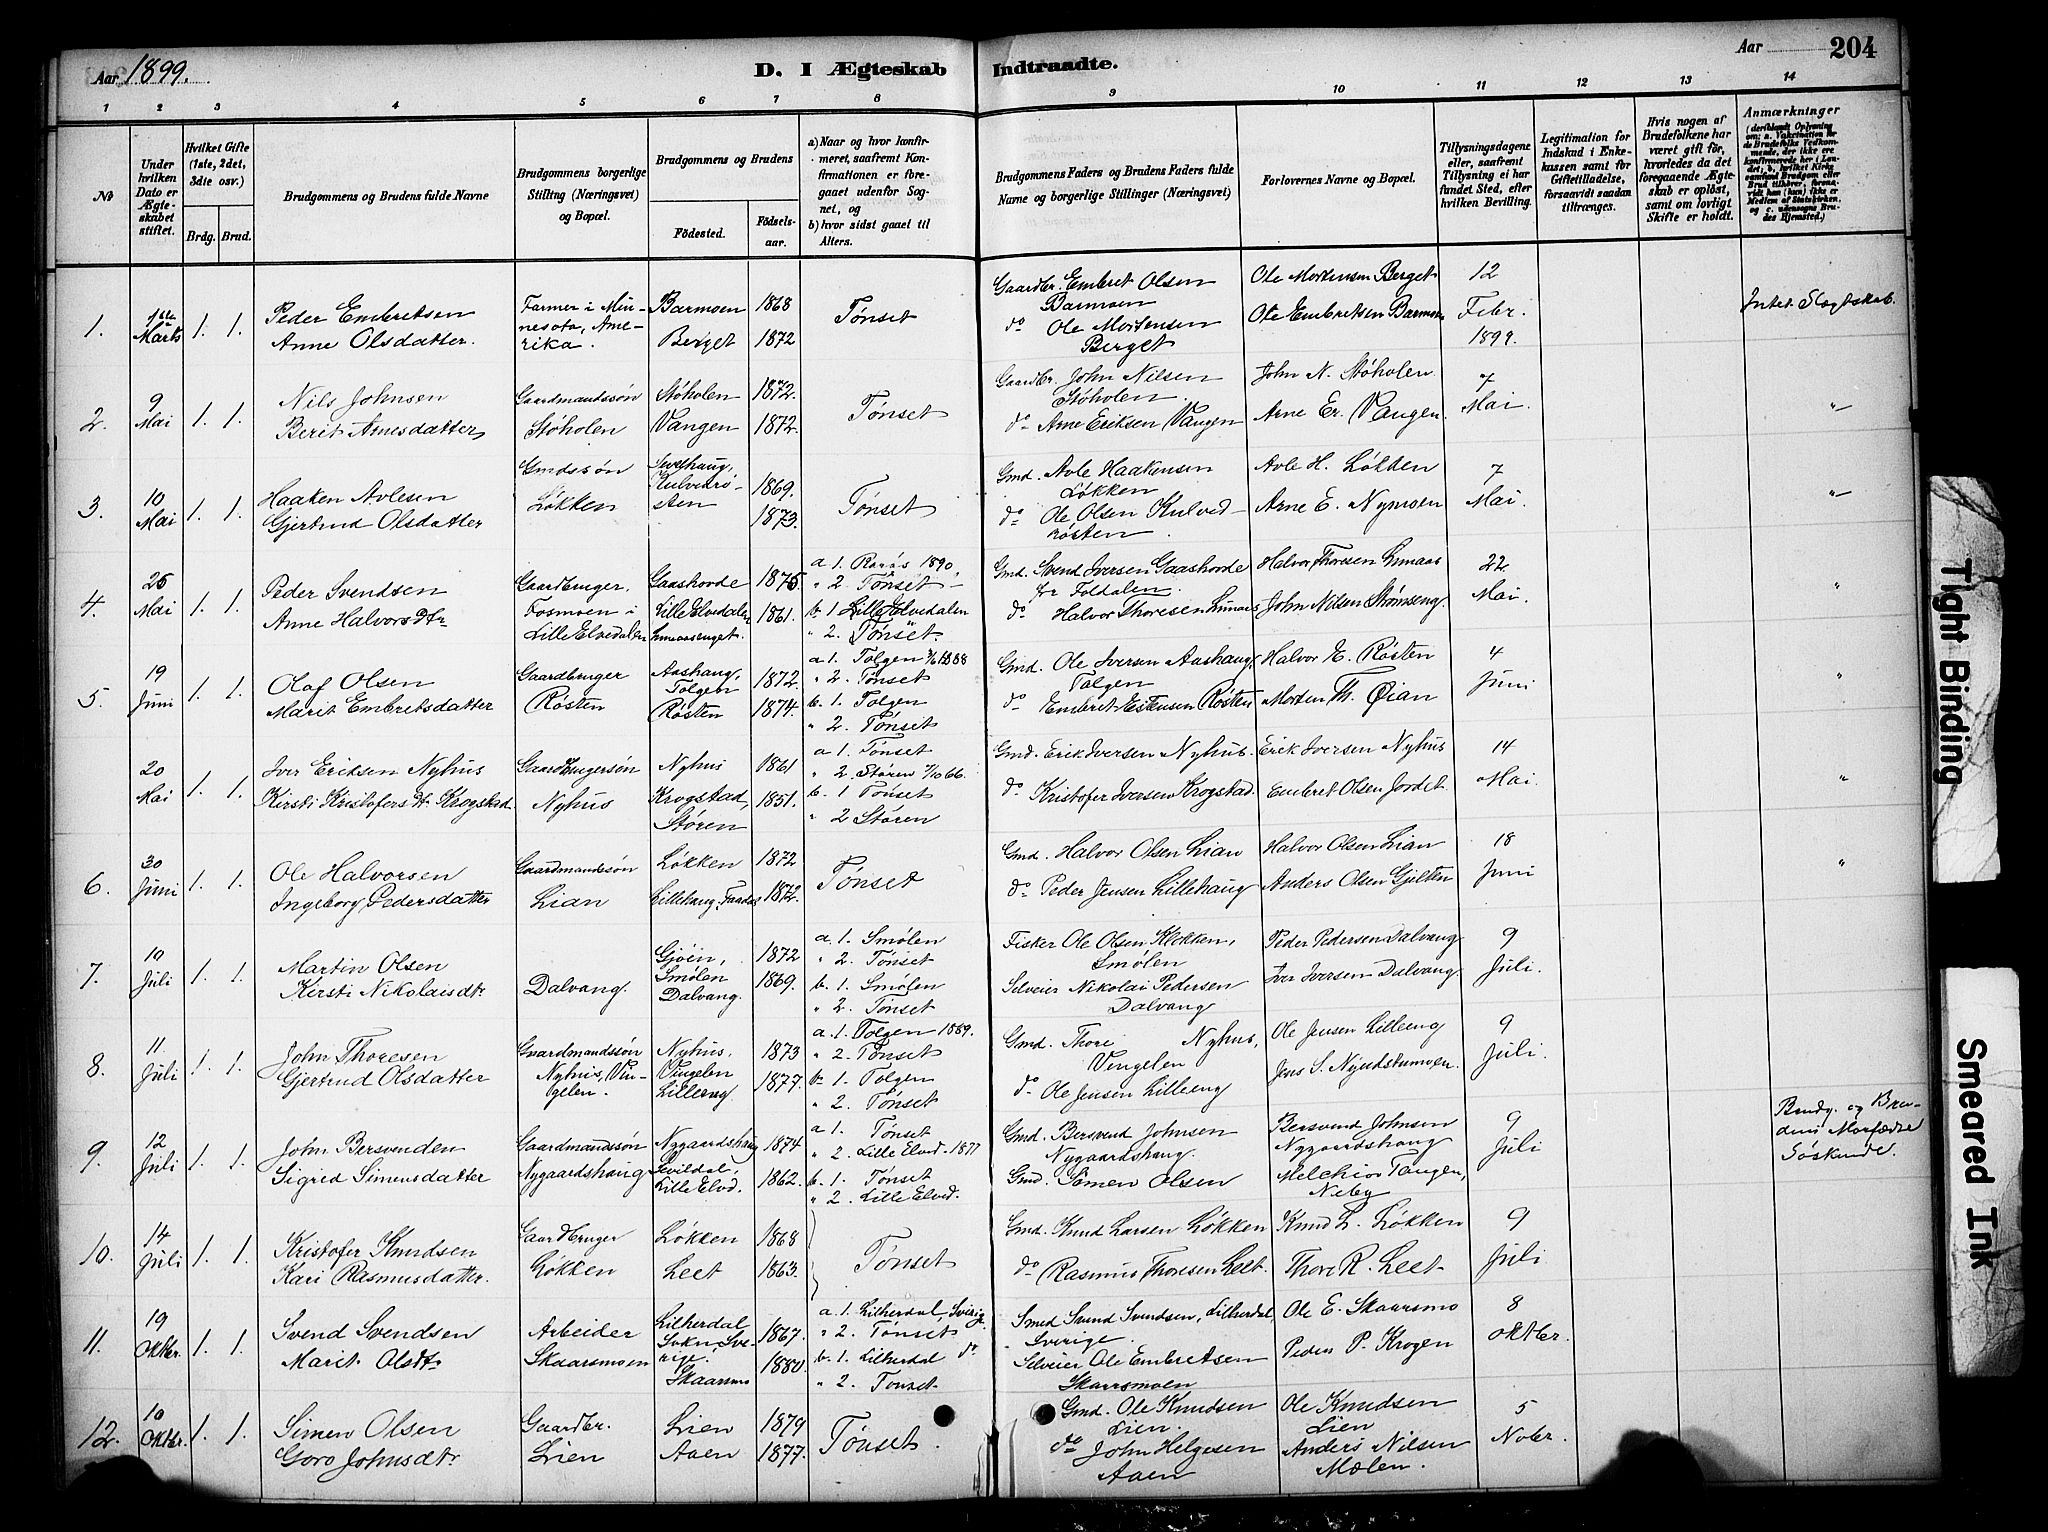 Aar 1899.
D. I Ægteskab Indtraadte.
Aar
204
1 2 3 4 5 6 7 8 9 10 11 12 13 14
No
Under hvilken Dato er Ægteskabet stiftet.
Hvilket Gifte (1ste, 2det, 3die osv.)
Brdg. Brud.
Brudgommens og Brudens fulde Navne
Brudgommens borgerlige Stilling (Næringsvei) og Bopæl.
Brudgommens og Brudens
Födested.
Födselsaar.
a) Naar og hvor konfirmeret, saafremt Konfirmationen er foregaaet udenfor Sognet, og
b) hvor sidst gaaet til Alters.
Brudgommens Faders og Brudens Faders fulde Navne og borgerlige Stillinger (Næringsvei)
Forlovernes Navne og Bopæl.
Tillysningsdagene eller, saafremt Tillysning ei har fundet Sted, efter hvilken Bevilling.
Legitimation for Indskud i Enkekassen samt for Giftetilladelse, forsaavidt saadan tiltrænges.
Hvis nogen af Brudefolkene har været gift för, hvorledes da det foregaaende Ægteskab er oplöst, samt om lovligt Skifte er holdt.
Anmærkninger
1. Marts 1. 1. Peder Embretsen
Anne Olsdatter.
Farmer i Minnesota, Amerika.
Barmoen 1868
Berget 1872
Tønset
Gaardbr. Embret Olsen Barmoen
do Ole Mortensen Berget
Ole Mortensen Berget
Ole Embretsen Barmoen
12 Febr. 1899.
Intet Slægtskab.
2. 9 Mai 1. 1. Nils Johnsen
Berit Arnesdatter
Gaardmandssøn Støholen
Støholen 1872.
Vangen 1872.
Tønset
Gaardbr. John Nilsen Støholen.
do Arne Eriksen Vangen
John N. Støholen
Arne Er. Vangen.
7 Mai.
"
3. 10 Mai 1. 1. Haaken Avlesen
Gjertrud Olsdatter
Gmdssøn Løkken
Kulvedrøsten
1869.
1873.
Tønset
Gmd. Avle Haakensen Løkken
do Ole Olsen Kulvedrøsten
Avle H. Løkken
Arne E. Nymoen
7 Mai.
"
4. 25 Mai 1. 1. Peder Svendsen
Anne Halvorsdtr
Gaardbruger. Fosmoen i Lille Elvedalen
Gaashovde 1875
Lille Elvedalen
1861.
a 1. Rørøs 1890,
" 2 Tønset
b. 1 Lille Elvedalen
" 2. Tønset.
Gmd. Svend Iversen Gaashovde fr Foldalen.
do Halvor Thoresen
Halvor Thoresen
John Nilsen Strømseng.
22. Mai.
"
5. 19 Juni 1. 1. Olaf Olsen
Marit Embretsdatter
Gaardbruger Røsten
Aashaug, Tolgen 1872.
Røsten 1874.
a 1. Tolgen 1888
" 2. Tønset
b. 1. Tolgen
" 2. Tønset
Gmd. Ole Iversen Aashaug, Tolgen
do Embret Estensen Røsten
Halvor E. Røsten
Morten Th. Øian
4 Juni
"
6. 20 Mai 1. 1. Iver Eriksen Nyhus
Kirsti Kristofersdt. Krogstad
Gaardbrugersøn Nyhus
Nyhus 1861
Krogstad, Støren 1851.
a 1. Tønset
" 2. Støren 7/10 66.
b. 1 Tønset
" 2 Støren
Gmd. Erik Iversen Nyhus.
do Kristofer Iversen Krogstad.
Erik Iversen Nyhus
Embret Olsen Jordet.
14 Mai.
"
6. 30 Juni 1. 1. Ole Halvorsen
Ingeborg Pedersdatter
Gaardmandssøn Lian
Løkken 1872
Lillehaug, 1872.
Tønset
Gmd. Halvor Olsen Lian
do Peder Jensen Lillehaug
Halvor Olsen Lian
Anders Olsen Gjelten
18 Juni
"
7. 10 Juli 1. 1. Martin Olsen
Kirsti Nikolaisdt.
Dalvang.
Gjøen, Smølen 1872
Dalvang. 1869.
a. 1. Smølen
" 2. Tønset
b. 1. Smølen
" 2. Tønset
Fisker Ole Olsen Klokken, Smølen
Selveier Nikolai Pedersen Dalvang
Peder Pedersen Dalvang
Iver Iversen Dalvang.
9 Juli.
8. 11. Juli 1. 1. John Thoresen
Gjertrud Olsdatter
Gaardmandssøn Nyhus, Vingelen.
Nyhus, Vingelen 1873
Lilleeng 1877.
a. 1. Tolgen 1889.
" 2. Tønset
b. 1. Tolgen
" 2. Tønset
Gmd. Thore Nyhus, Vingelen
do Ole Jensen Lilleeng
Ole Jensen Lilleeng
Jens S. Nyeidstumoen.
9 Juli.
9. 12 Juli 1. 1. John Bersvenden
Sigrid Simensdatter
Gaardmandssøn Nygaardshaug
Nygaardshaug 1874
Lille Elvd. 1862.
a 1. Tønset
" 2. Lille Elvd. 1877
b. 1. Tønset
" 2. Lille Elved.
Gmd. Bersvend Johnsen Nygaardshaug.
Gmd. Simen Olsen
Bersvend Johnsen Nygaardshaug
Melchior Tangen, Neby
9 Juli
Brudg. og Brudens Morfædre Søskende.
10. 14 Juli 1. 1. Kristofer Knudsen
Kari Rasmusdatter.
Gaardbruger Løkken
Løkken 1868
Leet 1863.
Tønset
Gmd. Knud Larsen Løkken
do Rasmus Thoresen Leet.
Knud L. Løkken
Thore R. Leet
9 Juli
11. 19 Oktbr. 1. 1. Svend Svendsen
Marit Olsdt.
Arbeider Skaarsmoen
Lilherdal Sokn, Sverige. 1867.
Skaarsmo 1880.
a. 1. Lilherdal, Sverige
" 2. Tønset
b. 1. Lilherdal do
" 2. Tønset
Smed Svend Svendsen, Lilherdal, Sverige.
Selveier Ole Embretsen Skaarsmoen
Ole E. Skaarsmo
Peder P. Krogen
8 Oktbr.
12. 10 Oktbr. 1. 1. Simen Olsen
Goro Johnsdt.
Gaardbr. Lien
Lien 1879
Aaen 1877.
Tønset.
Gmd. Ole Knudsen Lien.
do John Helgesen Aaen
Ole Knudsen Lien
Anders Nilsen Mælen.
5 Nobr.
Tight Binding
Smeared Ink